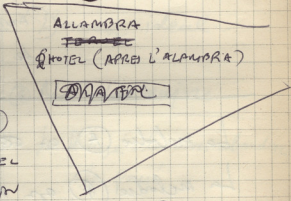 ALLAMBRA
TERUEL
HOTEL (APRES L'ALAMBRA)
EL